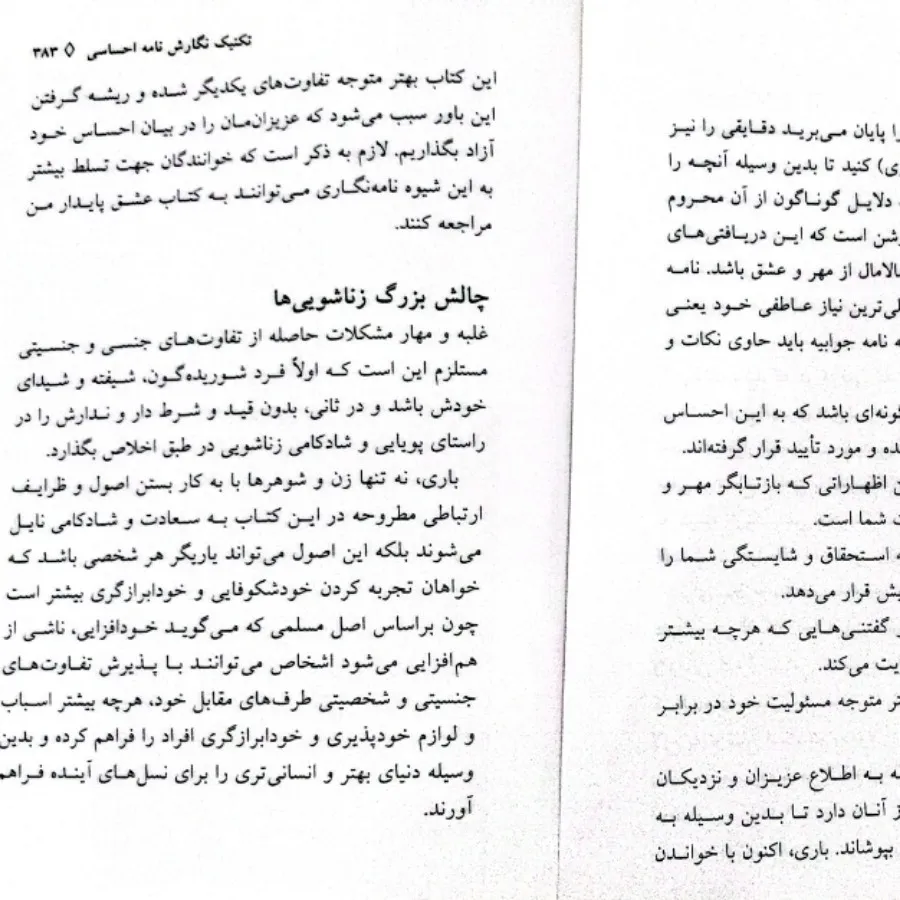 را پایان می‌برید دقایقی را نیز
کنید تا بدین وسیله آنچه را
دلایل گوناگون از آن محروم
است که این دریافتی‌های
از مهر و عشق باشد. نامه
نیاز عاطفی خود یعنی
نامه جوابیه باید حاوی نکات و
باشد که به این احساس
و مورد تأیید قرار گرفته‌اند.
اظهاراتی که بازتابگر مهر و
شما است.
استحقاق و شایستگی شما را
قرار می‌دهد.
گفتنی‌هایی که هرچه بیشتر
می‌کند.
متوجه مسئولیت خود در برابر
به اطلاع عزیزان و نزدیکان
از آنان دارد تا بدین وسیله به
بپوشاند. باری، اکنون با خواندن
تکنیک نگارش نامه احساسی ◊ ۳۸۳
این کتاب بهتر متوجه تفاوت‌های یکدیگر شده و ریشه گرفتن
این باور سبب می‌شود که عزیزان‌مان را در بیان احساس خود
آزاد بگذاریم. لازم به ذکر است که خوانندگان جهت تسلط بیشتر
به این شیوه نامه‌نگاری می‌توانند به کتاب عشق پایدار من
مراجعه کنند.
چالش بزرگ زناشویی‌ها
غلبه و مهار مشکلات حاصله از تفاوت‌های جنسی و جنسیتی
مستلزم این است که اولاً فرد شوریده‌گون، شیفته و شیدای
خودش باشد و در ثانی، بدون قید و شرط دار و ندارش را در
راستای پویایی و شادکامی زناشویی در طبق اخلاص بگذارد.
باری، نه تنها زن و شوهرها با به کار بستن اصول و ظرایف
ارتباطی مطروحه در این کتاب به سعادت و شادکامی نایل
می‌شوند بلکه این اصول می‌تواند یاریگر هر شخصی باشد که
خواهان تجربه کردن خودشکوفایی و خودابرازگری بیشتر است
چون براساس اصل مسلمی که می‌گوید خودافزایی، ناشی از
هم‌افزایی می‌شود اشخاص می‌توانند با پذیرش تفاوت‌های
جنسیتی و شخصیتی طرف‌های مقابل خود، هرچه بیشتر اسباب
و لوازم خودپذیری و خودابرازگری افراد را فراهم کرده و بدین
وسیله دنیای بهتر و انسانی‌تری را برای نسل‌های آینده فراهم
آورند.